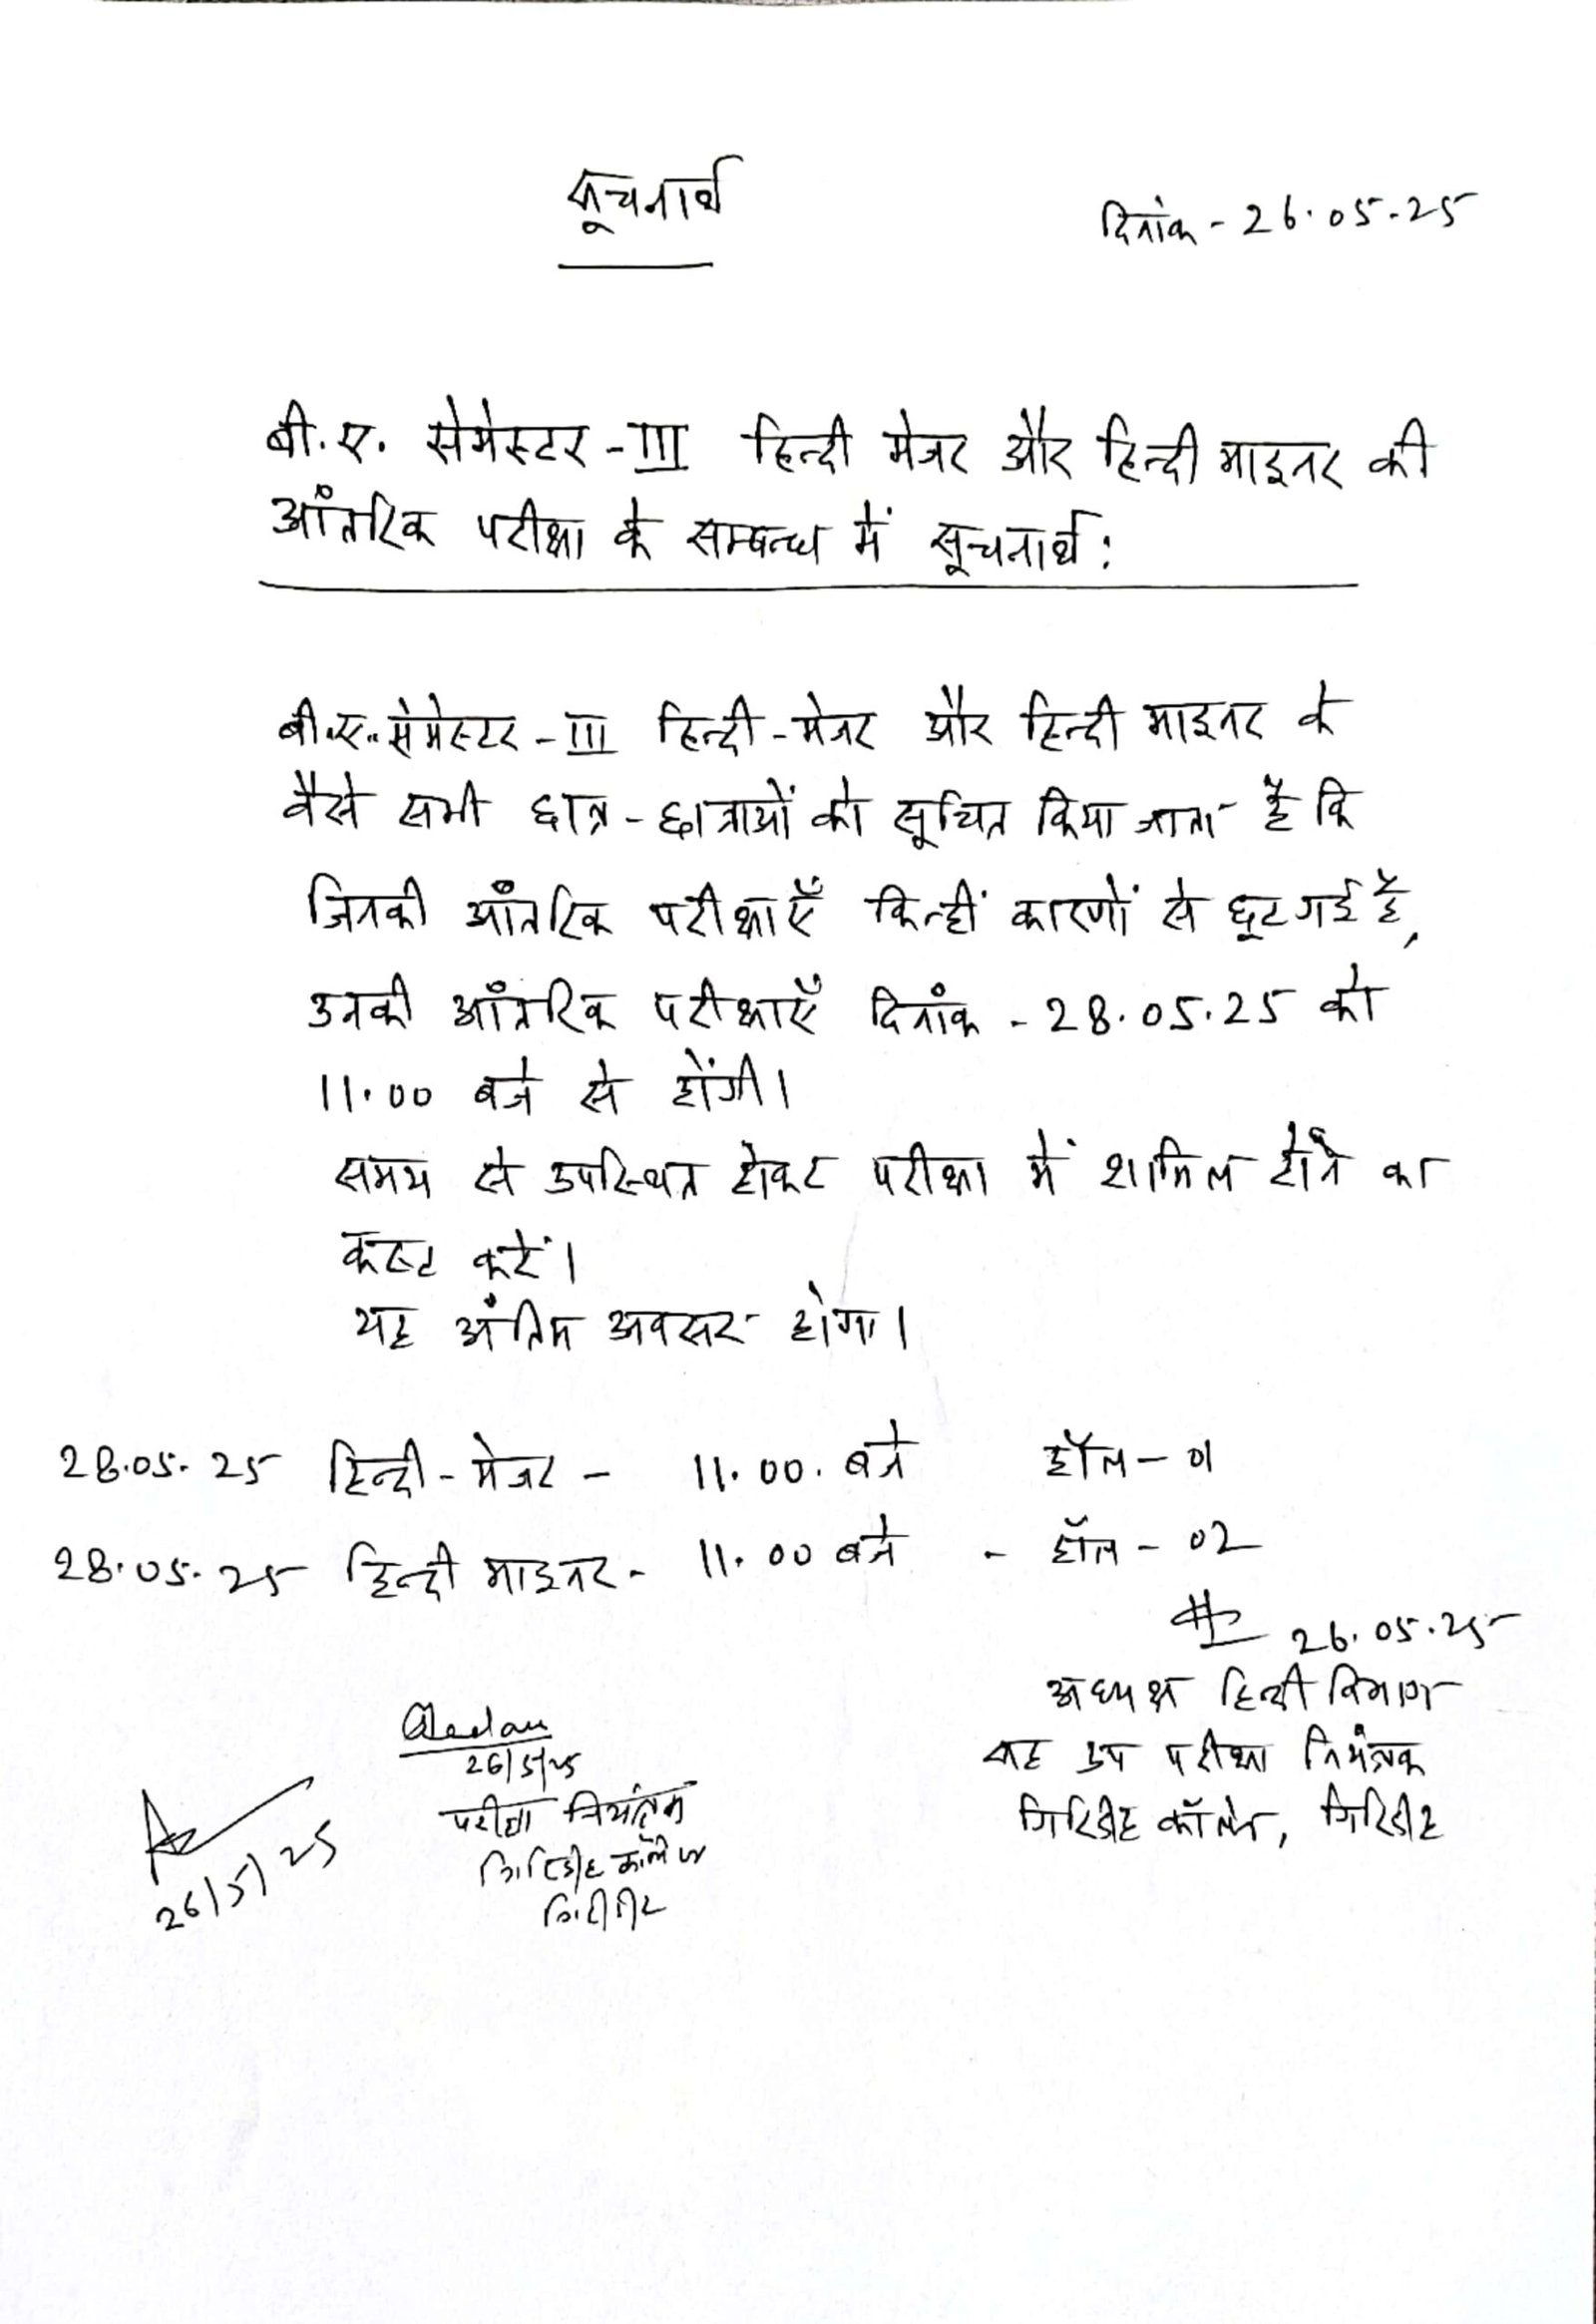 सूचनार्थ
दिनांक - 26.05.25
बी.ए. सेमेस्टर-III हिन्दी मेजर और हिन्दी माइनर की
आंतरिक परीक्षा के सम्बन्ध में सूचनार्थ:
बी.ए. सेमेस्टर-III हिन्दी-मेजर और हिन्दी माइनर के
वैसे सभी छात्र-छात्राओं को सूचित किया जाता है कि
जिनकी आंतरिक परीक्षाएँ किन्हीं कारणों से छूट गई हैं,
उनकी आंतरिक परीक्षाएँ दिनांक - 28.05.25 को
11.00 बजे से होंगी।
समय से उपस्थित होकर परीक्षा में शामिल होने का
कष्ट करें।
यह अंतिम अवसर होगा।
28.05.25 हिन्दी-मेजर - 11.00. बजे हॉल-01
28.05.25 हिन्दी माइनर - 11.00 बजे - हॉल-02
26.05.25
अध्यक्ष हिन्दी विभाग
सह उप परीक्षा नियंत्रक
गिरिडीह कॉलेज, गिरिडीह
26/5/25
परीक्षा नियंत्रक
गिरिडीह कॉलेज
गिरिडीह
26/5/25